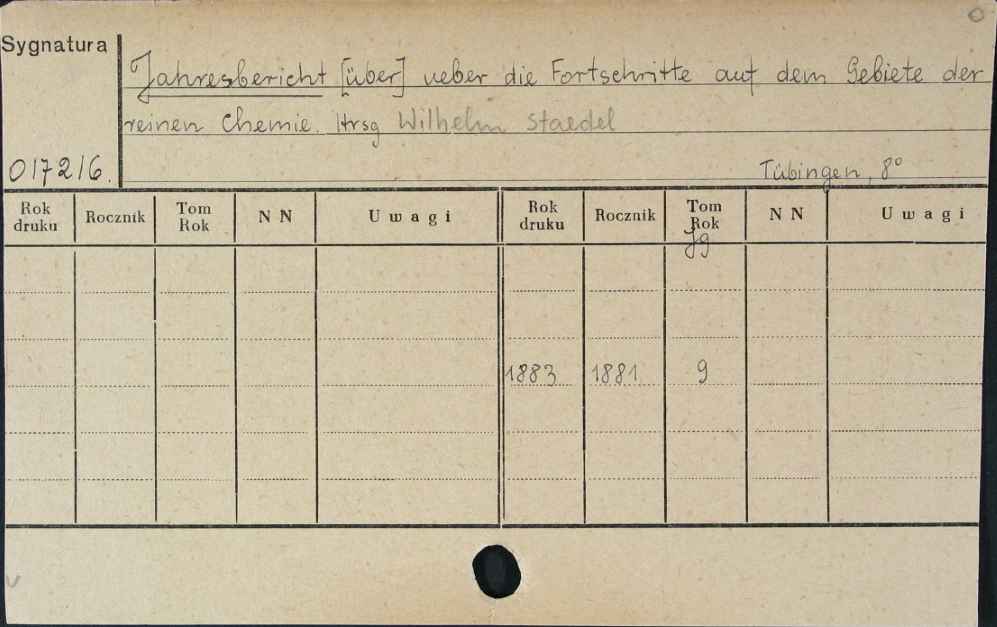 Sygnatura
Jahresbericht [über] ueber die Fortschritte auf dem Gebiete der
reinen Chemie. Hrsg Wilhelm Staedel
017216.
Tübingen, 8°
Rok druku Rocznik Tom Rok N N Uwagi Rok druku Rocznik Tom Rok N N Uwagi
Jg
1883 1881 9